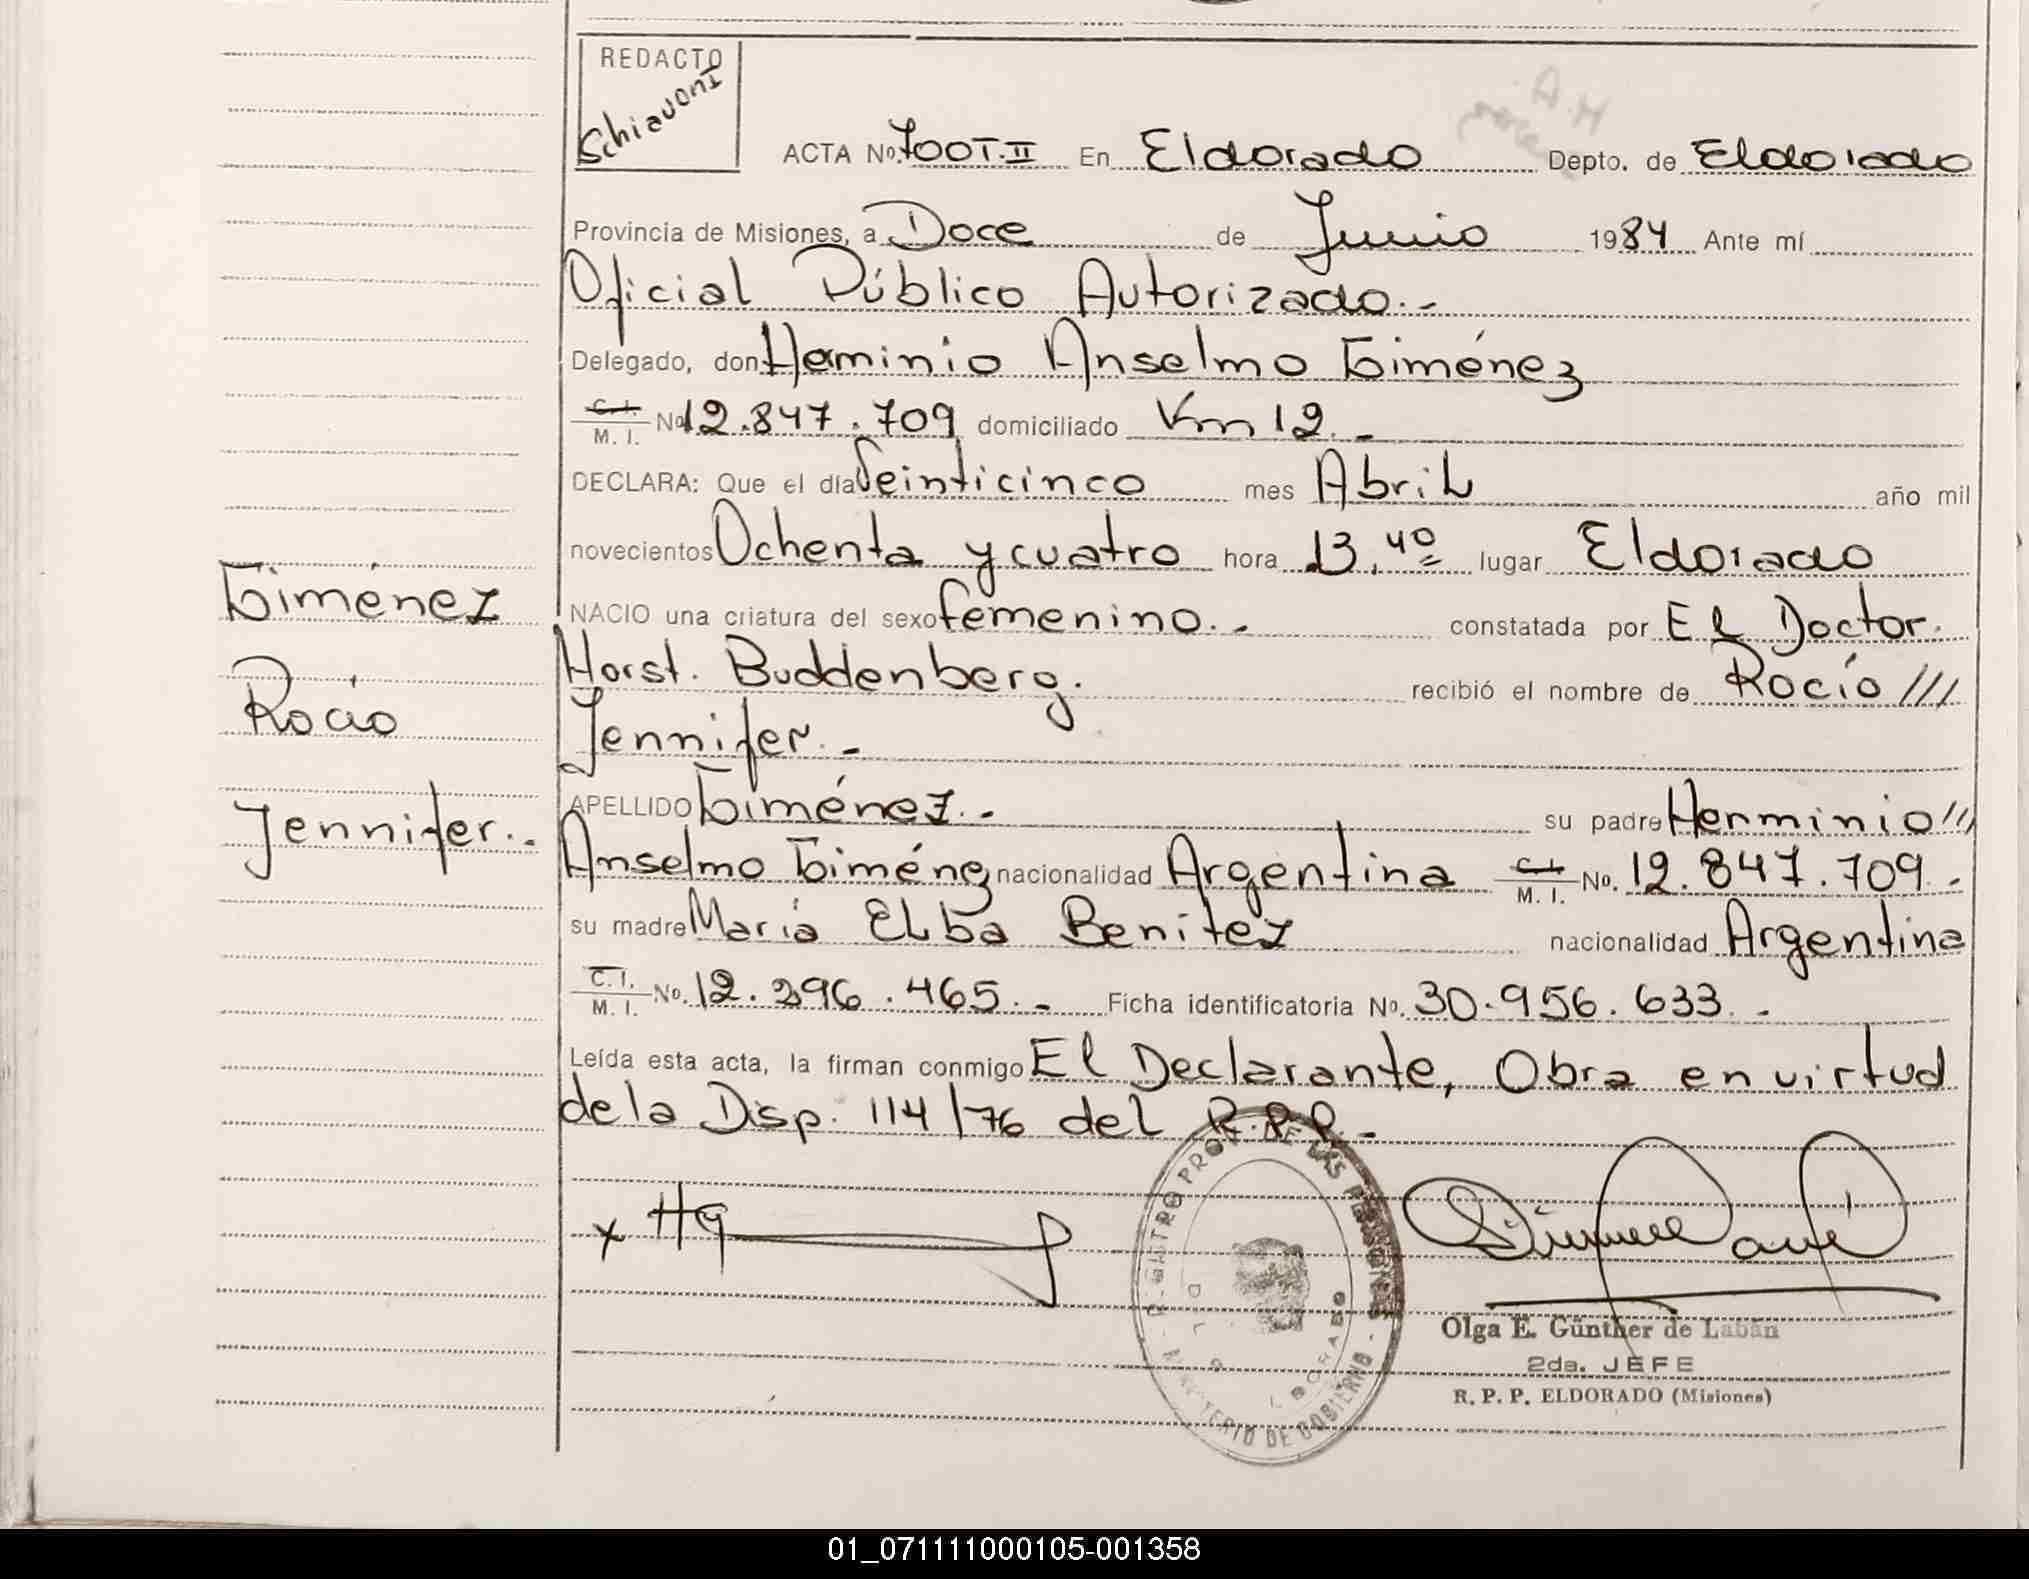 REDACTO
Schiavoni
ACTA Nº 700 T.II En Eldorado Depto. de Eldorado
Provincia de Misiones, a Doce de Junio 1984 Ante mí
Oficial Público Autorizado.-
Delegado, don Herminio Anselmo Giménez
C.I. / M. I. Nº 12.847.709 domiciliado Km 12.-
DECLARA: Que el día Veinticinco mes Abril año mil
novecientos Ochenta y cuatro hora 13,40 lugar Eldorado
NACIO una criatura del sexo femenino.- constatada por El Doctor.
Horst. Buddenberg. recibió el nombre de Rocío ///
Jennifer.-
APELLIDO Giménez.- su padre Herminio ///
Anselmo Giménez nacionalidad Argentina C.I. / M. I. Nº. 12.847.709.-
su madre María Elba Benítez nacionalidad Argentina
C.I. / M. I. Nº. 12.296.465.- Ficha identificatoria Nº. 30.956.633.-
Leída esta acta, la firman conmigo El Declarante, Obra en virtud
de la Disp. 114/76 del R.P.P.-
Giménez
Rocío
Jennifer.-
x HG
REGISTRO PROV. DE LAS PERSONAS - MINISTERIO DE GOBIERNO -
ELDORADO
Olga E. Günther de Labán
2da. JEFE
R. P. P. ELDORADO (Misiones)
01_071111000105-001358